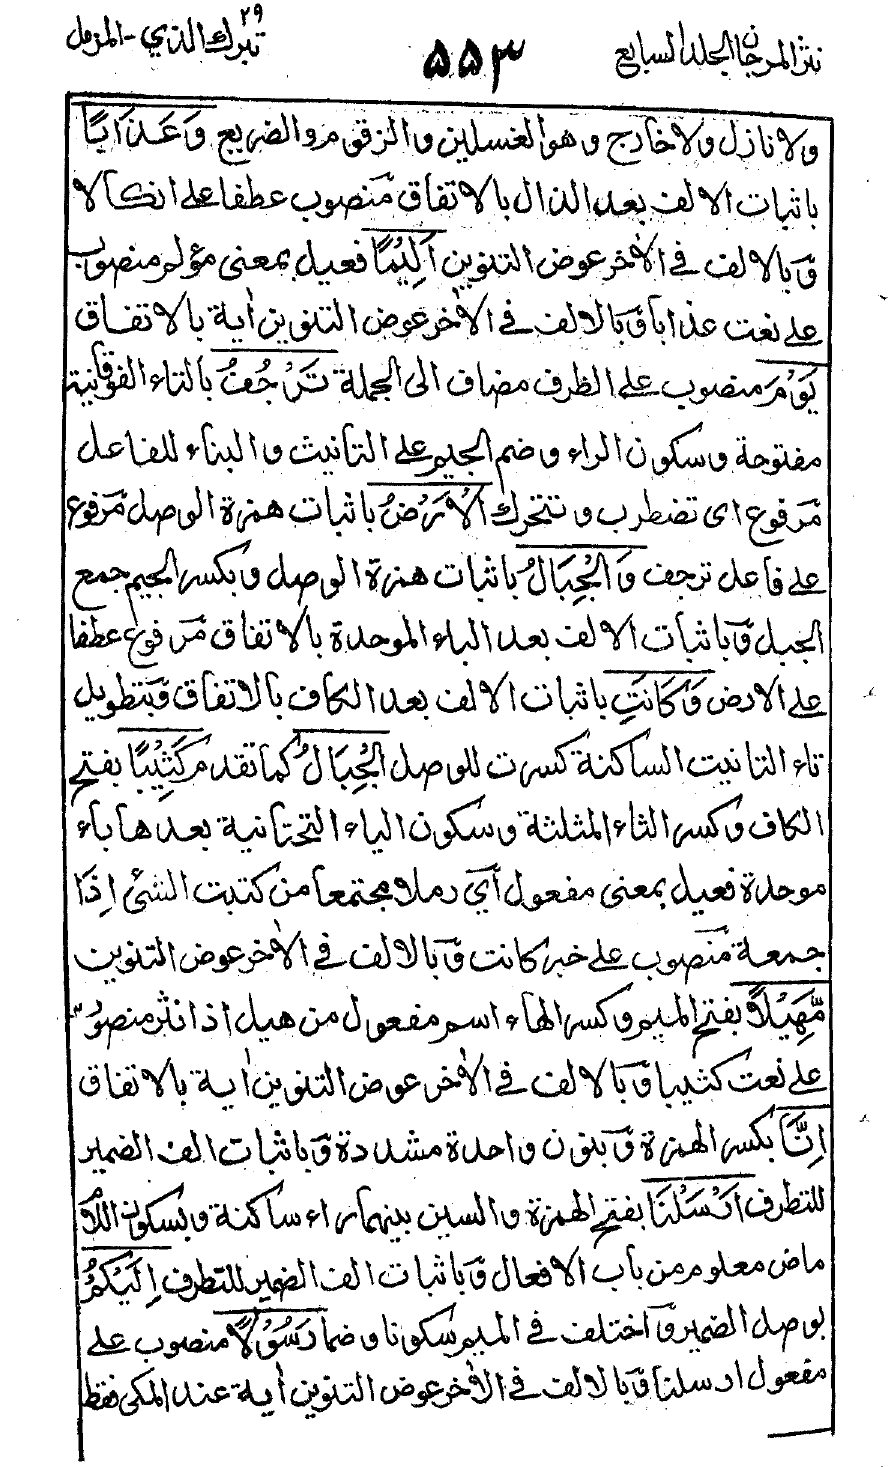 نثر المرجان المجلد السابع ٥٥٣ تبرك الذي ٢٩ - المزمل
ولا نازل ولا خارج وهو الغسلين والزقوم والضريع وَعَذَابًا
باثبات الالف بعد الذال بالاتفاق منصوب عطفا على انكالا
وبالالف في الاخر عوض التنوين اَلِيْمًا فعيل بمعنى مؤلم منصوب
على نعت عذابا وبالالف في الاخر عوض التنوين اٰية بالاتفاق
يَوْمَ منصوب على الظرف مضاف الى الجملة تَرْجُفُ بالتاء الفوقانية
مفتوحة وسكون الراء وضم الجيم على التانيث والبناء للفاعل
مرفوع اى تضطرب وتتحرك الْاَرْضُ باثبات همزة الوصل مرفوع
على فاعل ترجف وَالْجِبَالُ باثبات همزة الوصل وبكسر الجيم جمع
الجبل وباثبات الالف بعد الباء الموحدة بالاتفاق مرفوع عطفا
على الارض وَكَانَتِ باثبات الالف بعد الكاف بالاتفاق وبتطويل
تاء التانيث الساكنة كسرت للوصل الْجِبَالُ كما تقدم كَثِيْبًا بفتح
الكاف وكسر الثاء المثلثة وسكون الياء التحتانية بعدها باء
موحدة فعيل بمعنى مفعول اي رملا مجتمعا من كثبت الشئ اذا
جمعة منصوب على خبر كانت وبالالف في الاخر عوض التنوين
مَّهِيْلًا بفتح الميم وكسر الهاء اسم مفعول من هيل اذا نثر منصوب
على نعت كثيبا وبالالف في الاخر عوض التنوين اٰية بالاتفاق
اِنَّا بكسر الهمزة وبنون واحدة مشددة وباثبات الف الضمير
للتطرف اَرْسَلْنَا بفتح الهمزة والسين بينهما راء ساكنة وبسكون اللام
ماض معلوم من باب الافعال وباثبات الف الضمير للتطرف اِلَيْكُمْ
بوصل الضمير واختلف في الميم سكونا وضما رَسُوْلًا منصوب على
مفعول ارسلنا وبالالف في الاخر عوض التنوين اٰية عند المكى فقط